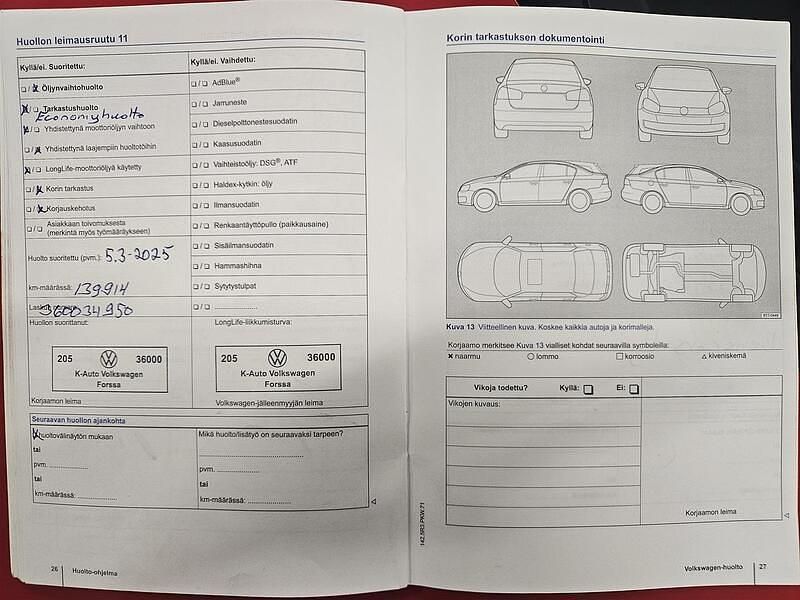 Huollon leimausruutu 11
Kyllä/ei. Suoritettu:
☐/☒ Öljynvaihtohuolto
☒/☐ Tarkastushuolto
Economyhuolto
☒/☐ Yhdistettynä moottoriöljyn vaihtoon
☐/☒ Yhdistettynä laajempiin huoltotöihin
☒/☐ LongLife-moottoriöljyä käytetty
☐/☒ Korin tarkastus
☐/☒ Korjauskehotus
☐/☐ Asiakkaan toivomuksesta
(merkintä myös työmääräykseen)
Huolto suoritettu (pvm.): 5.3-2025
km-määrässä: 139914
360034950
Huollon suorittanut:
205 36000
K-Auto Volkswagen
Forssa
Korjaamon leima
Kyllä/ei. Vaihdettu:
☐/☐ AdBlue®
☐/☐ Jarruneste
☐/☐ Dieselpolttonestesuodatin
☐/☐ Kaasusuodatin
☐/☐ Vaihteistoöljy: DSG®, ATF
☐/☐ Haldex-kytkin: öljy
☐/☐ Ilmansuodatin
☐/☐ Renkaantäyttöpullo (paikkausaine)
☐/☐ Sisäilmansuodatin
☐/☐ Hammashihna
☐/☐ Sytytystulpat
☐/☐ ....................
LongLife-liikkumisturva:
205 36000
K-Auto Volkswagen
Forssa
Volkswagen-jälleenmyyjän leima
Seuraavan huollon ajankohta
☒ huoltovälinäytön mukaan
tai
pvm. ....................
tai
km-määrässä: ....................
Mikä huolto/lisätyö on seuraavaksi tarpeen?
....................
pvm. ....................
tai
km-määrässä: ....................
26 Huolto-ohjelma
142.5R3.PKW.71
Korin tarkastuksen dokumentointi
Kuva 13 Viitteellinen kuva. Koskee kaikkia autoja ja korimalleja.
Korjaamo merkitsee Kuva 13 vialliset kohdat seuraavilla symboleilla:
✕ naarmu ○ lommo □ korroosio △ kiveniskemä
Vikoja todettu? Kyllä: ☐ Ei: ☐
Vikojen kuvaus:
Korjaamon leima
Volkswagen-huolto 27